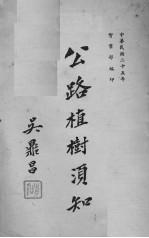 中華民國二十五年
實業部編印
公路植樹須知
吳鼎昌